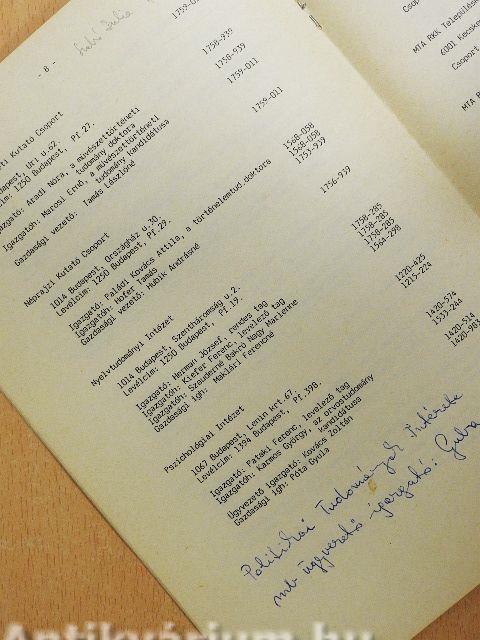 - 8 -
1759-011
1758-939
1758-939
1759-011
ti Kutató Csoport
Budapest, Úri u.62.
cím: 1250 Budapest, Pf.27.
Igazgató: Aradi Nóra, a művészettörténeti
tudomány doktora
Igazgatóh: Marosi Ernő, a művészettörténeti
tudomány kandidátusa
Gazdasági vezető: Tamás Lászlóné
1759-011
1568-058
1568-058
1753-939
1756-939
Néprajzi Kutató Csoport
1014 Budapest, Országház u.30.
Levélcím: 1250 Budapest, Pf.29.
Igazgató: Paládi Kovács Attila, a történelemtud.doktora
Igazgatóh: Hofer Tamás
Gazdasági vezető: Hubik Andrásné
1758-285
1758-285
1790-285
1564-298
Nyelvtudományi Intézet
1014 Budapest, Szentháromság u.2.
Levélcím: 1250 Budapest, Pf.19.
Igazgató: Herman József, rendes tag
Igazgatóh: Kiefer Ferenc, levelező tag
Igazgatóh: Szauderné Bakró Nagy Marianne
Gazdasági igh: Maklári Ferencné
1220-425
1215-224
1420-574
1533-244
1420-514
1420-983
Pszichológiai Intézet
1067 Budapest, Lenin krt.67.
Levélcím: 1394 Budapest, Pf.398.
Igazgató: Pataki Ferenc, levelező tag
Igazgatóh: Karmos György, az orvostudomány
kandidátusa
Ügyvezető igazgató: Kovács Zoltán
Gazdasági igh: Póta Gyula
Politikai Tudományok Intézete
mb ügyvezető igazgató:
MTA RKK Település
6001 Kecskem
Csoport
MTA R
Antikvárium.hu